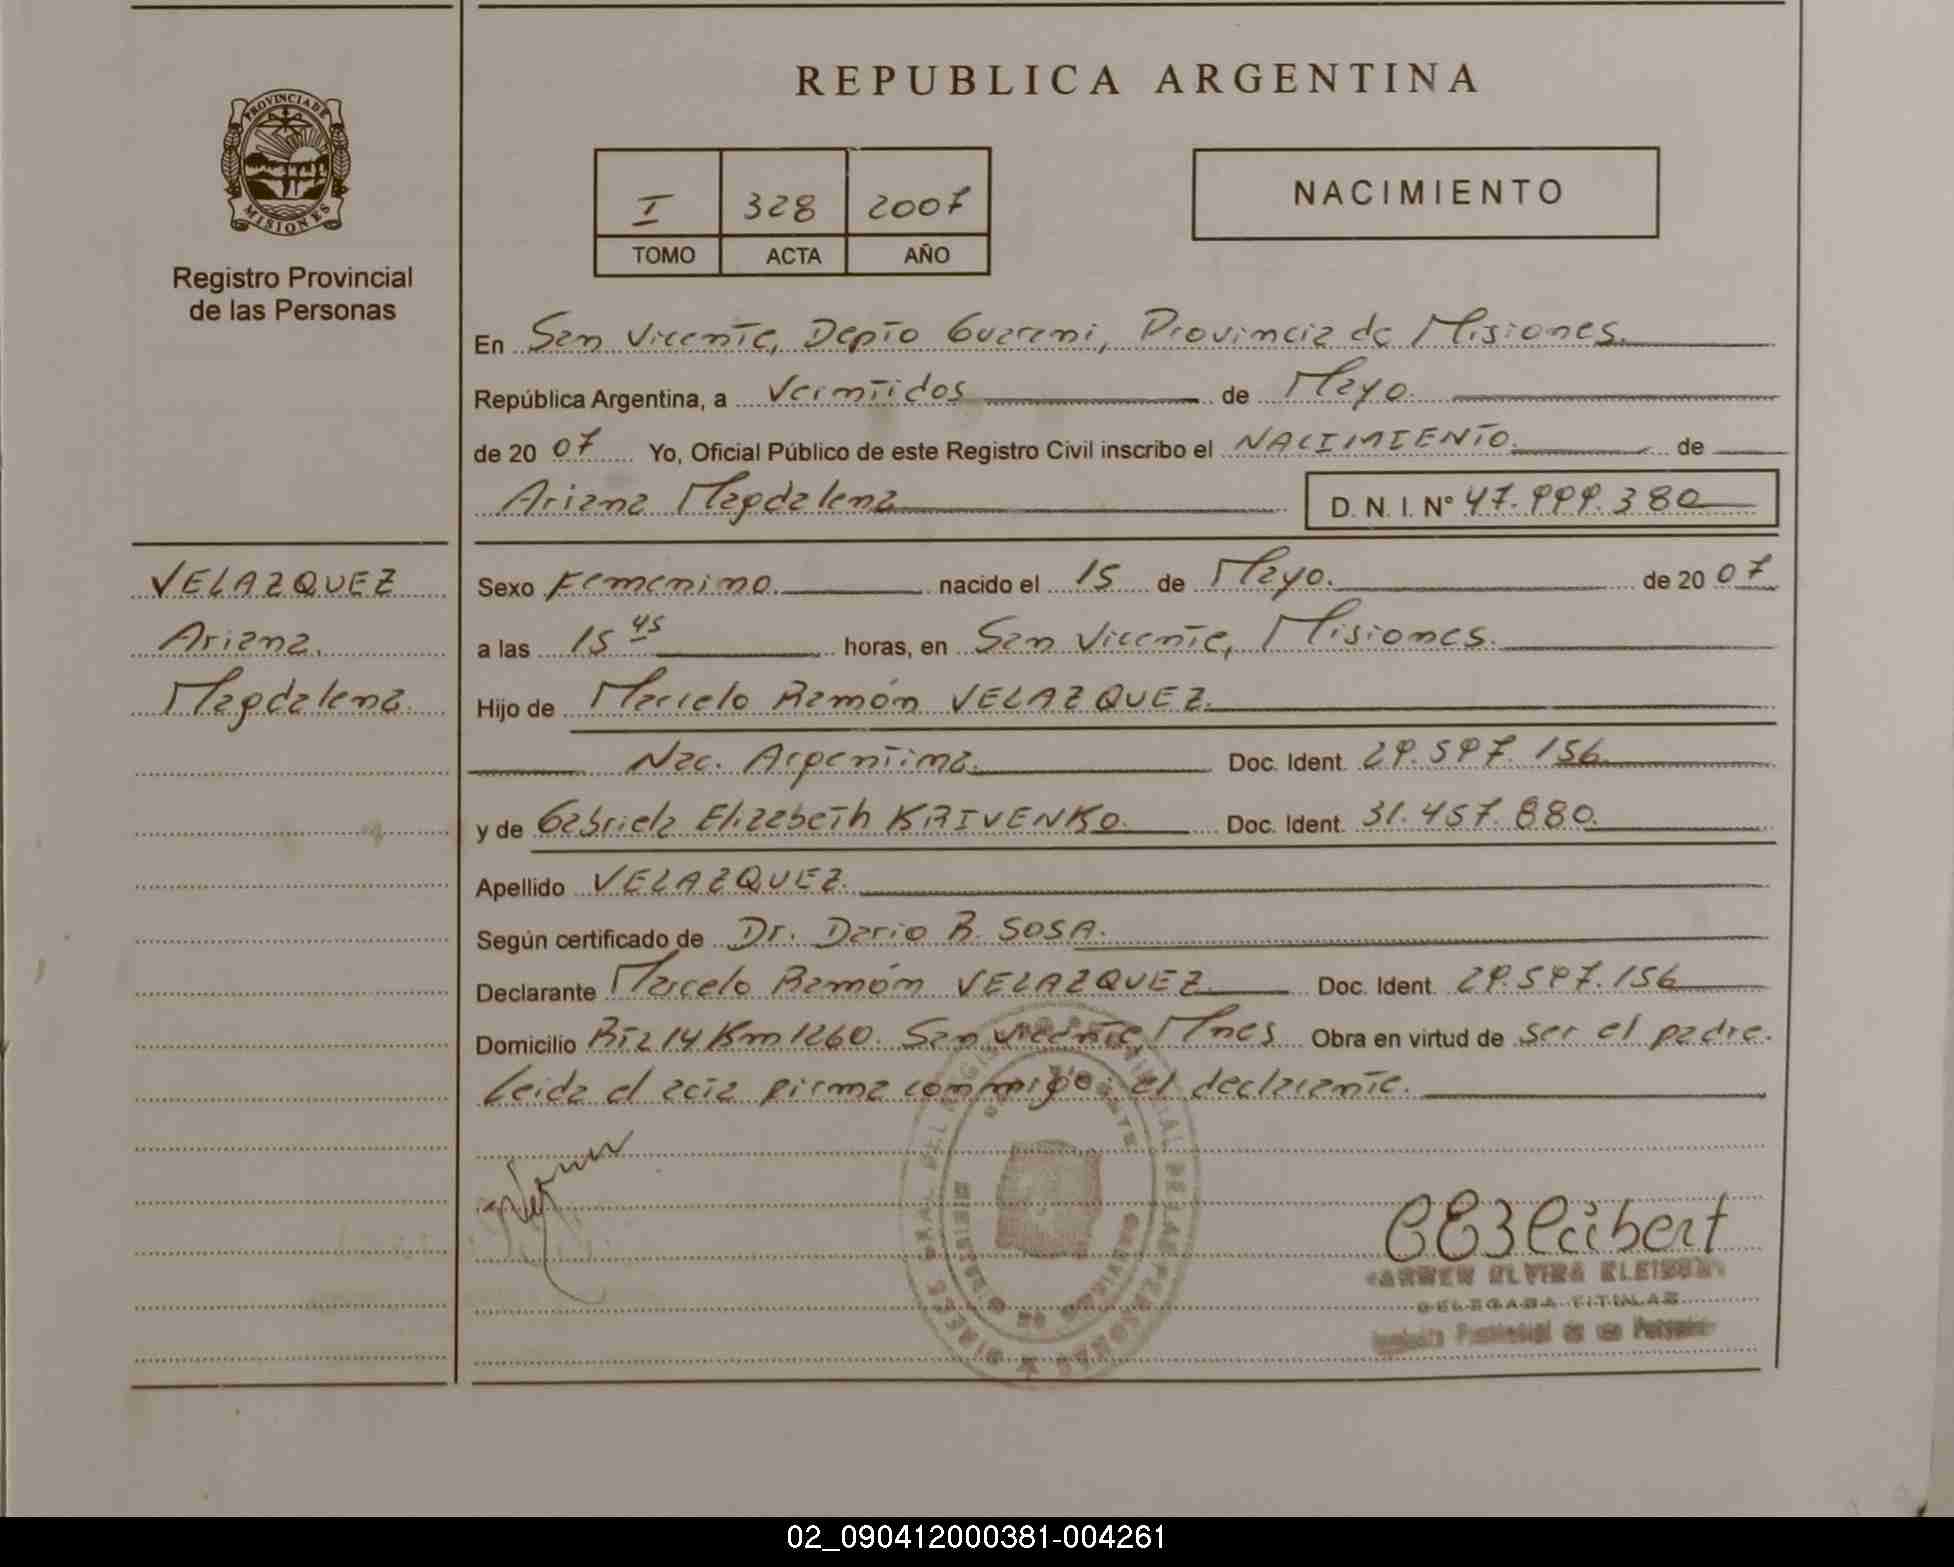 PROVINCIA DE
MISIONES
Registro Provincial
de las Personas
REPUBLICA ARGENTINA
I 328 2007
TOMO ACTA AÑO
NACIMIENTO
En San Vicente, Depto Guarani, Provincia de Misiones.
República Argentina, a Veintidos de Mayo.
de 20 07 Yo, Oficial Público de este Registro Civil inscribo el NACIMIENTO. de
Ariana Magdalena D. N. I. N° 47.999.380
VELAZQUEZ
Ariana.
Magdalena.
Sexo Femenino. nacido el 15 de Mayo. de 20 07
a las 15 45 horas, en San Vicente, Misiones.
Hijo de Marcelo Ramón VELAZQUEZ.
Nac. Argentina. Doc. Ident. 29.597.156.
y de Gabriela Elizabeth KRIVENKO. Doc. Ident. 31.457.880.
Apellido VELAZQUEZ.
Según certificado de Dr. Dario R. SOSA.
Declarante Marcelo Ramón VELAZQUEZ. Doc. Ident. 29.597.156
Domicilio Rta 14 Km 1260. San Vicente, Mnes Obra en virtud de ser el padre.
Leida el acta firma conmigo: el declarante.
DELEGADA TITULAR
02_090412000381-004261